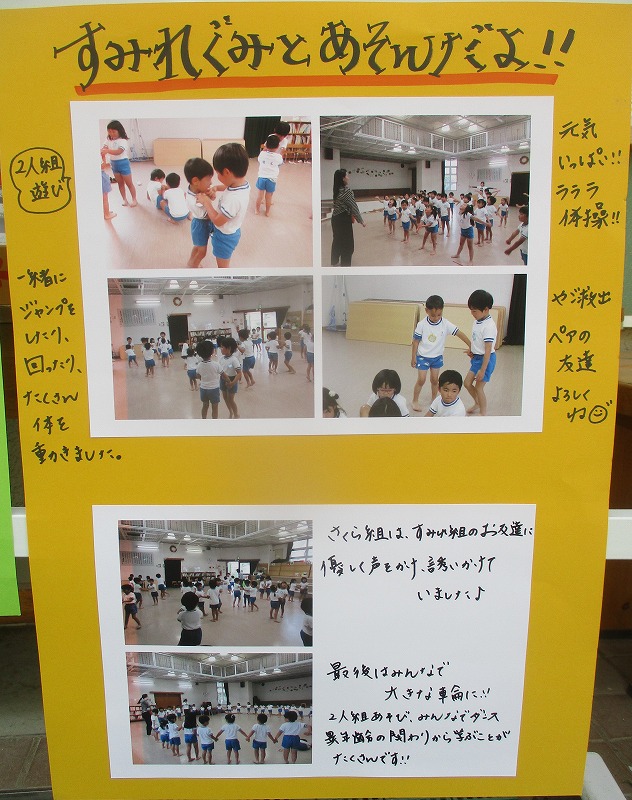 すみれぐみとあそんだよ!!
2人組
遊び
一緒に
ジャンプを
したり、
回ったり、
たくさん
体を
動かきました。
元気
いっぱい!!
ラララ
体操!!
やご救出
ペアの
友達
よろしく
ね
さくら組は、すみれ組のお友達に
優しく声をかけ、誘いかけて
いました♪
最後はみんなで
大きな車輪に!!
2人組あそび、みんなでダンス
異年齢の関わりから学ぶことが
たくさんです!!